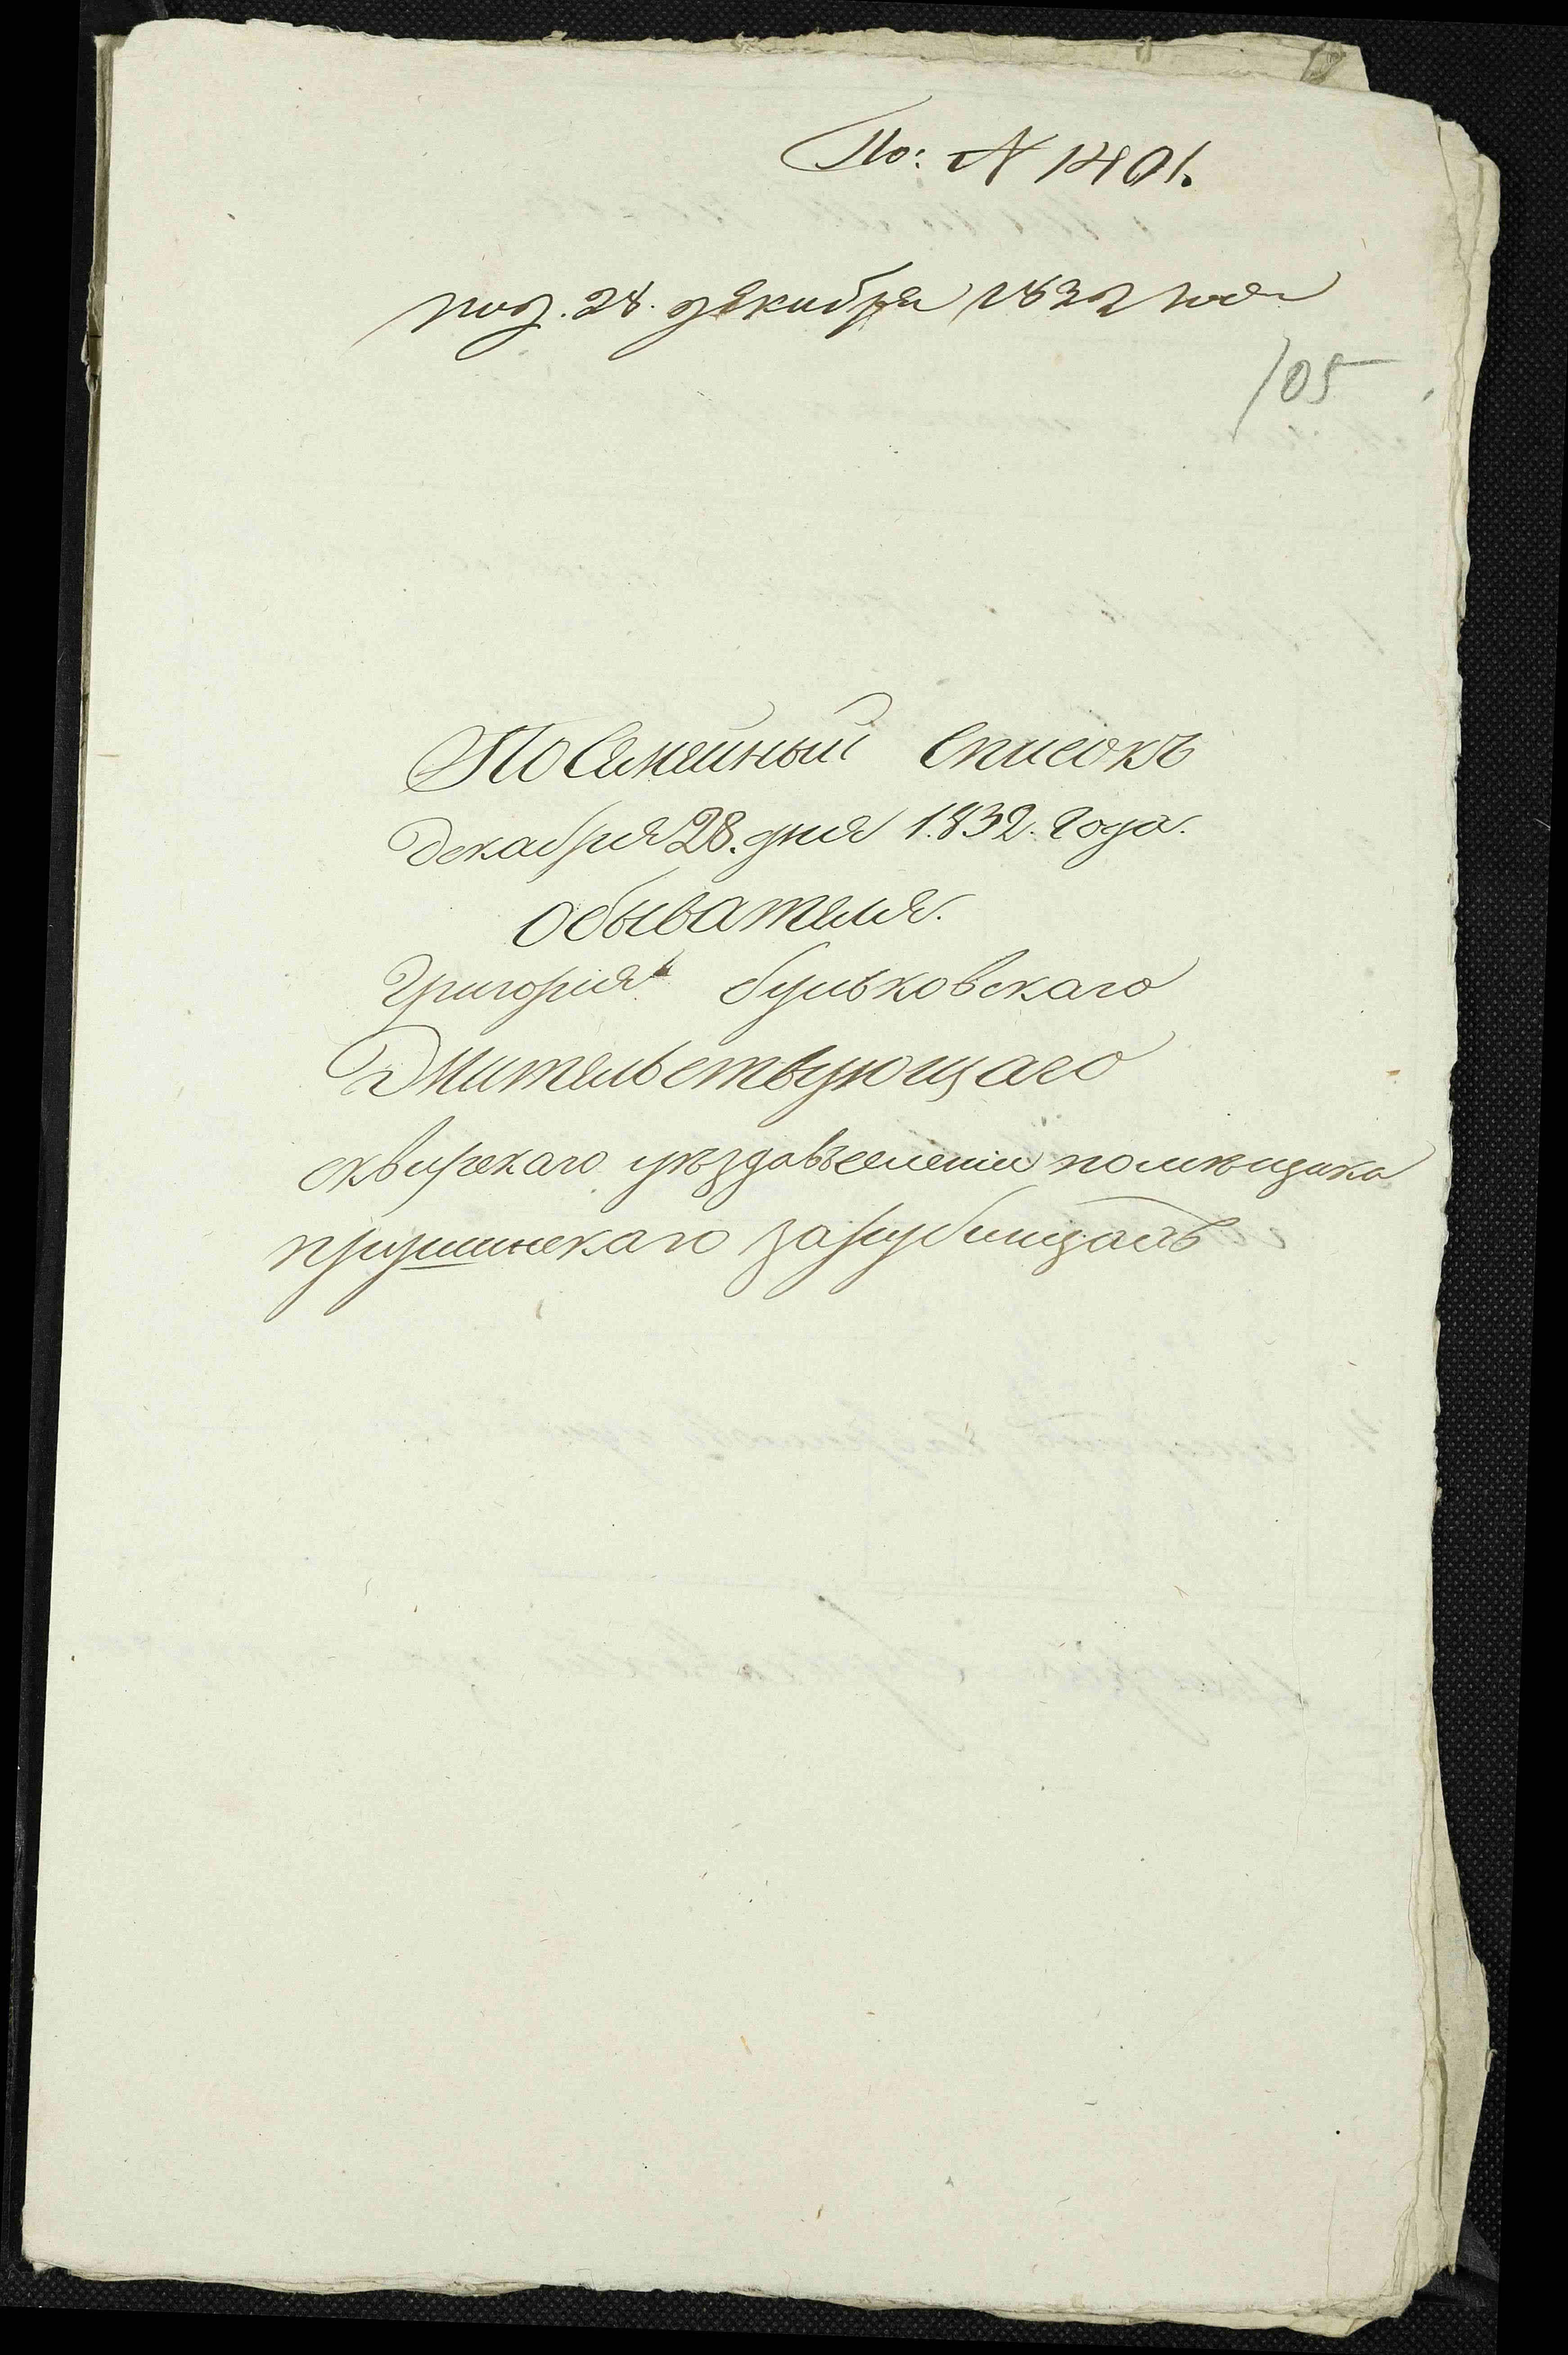 По: № 1401.
под. 28. декабря 1832 года
105
Посемейный Списокъ
Декабря 28. дня 1832. Года.
Обывателя.
Григорія Бульковскаго
Жительствующаго
сквирскаго уѣзда въ селеніи помѣщика
прушинскаго зарубинцахъ